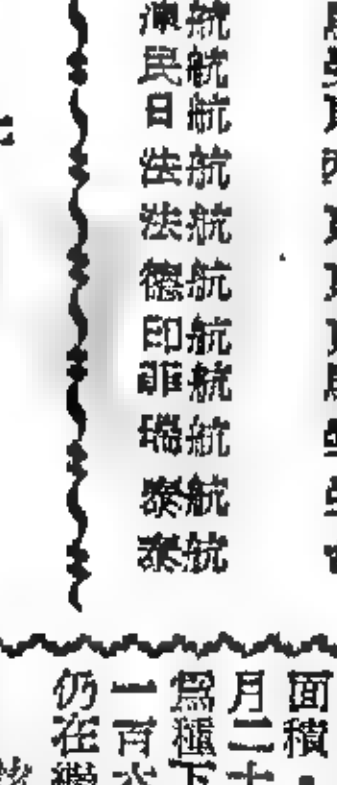 民航
日航
法航
法航
德航
印航
菲航
瑞航
泰航
泰航
面積
月二十
為種下
一百六
仍在繼